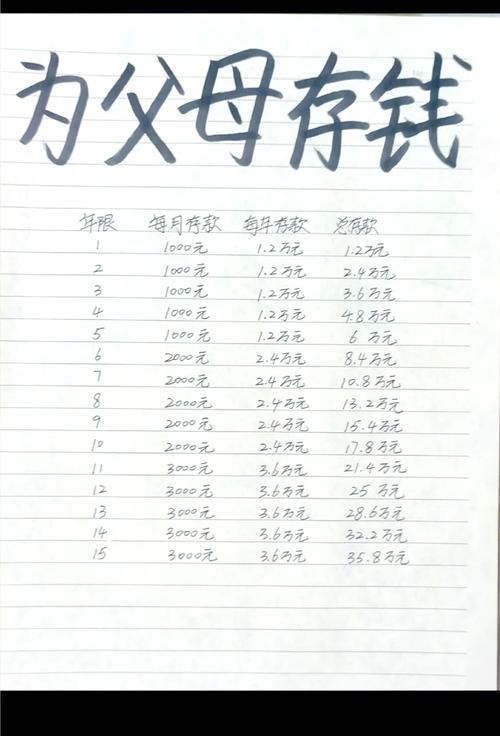 为父母存钱
年限 每月存款 每年存款 总存款
1 1000元 1.2万元 1.2万元
2 1000元 1.2万元 2.4万元
3 1000元 1.2万元 3.6万元
4 1000元 1.2万元 4.8万元
5 1000元 1.2万元 6万元
6 2000元 2.4万元 8.4万元
7 2000元 2.4万元 10.8万元
8 2000元 2.4万元 13.2万元
9 2000元 2.4万元 15.4万元
10 2000元 2.4万元 17.8万元
11 3000元 3.6万元 21.4万元
12 3000元 3.6万元 25万元
13 3000元 3.6万元 28.6万元
14 3000元 3.6万元 32.2万元
15 3000元 3.6万元 35.8万元